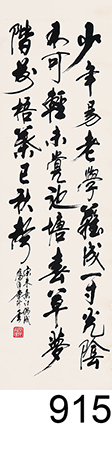 少年易老學難成一寸光陰
不可輕未覺池塘春草夢
階前梧葉已秋聲
宋朱熹詩偶成
915